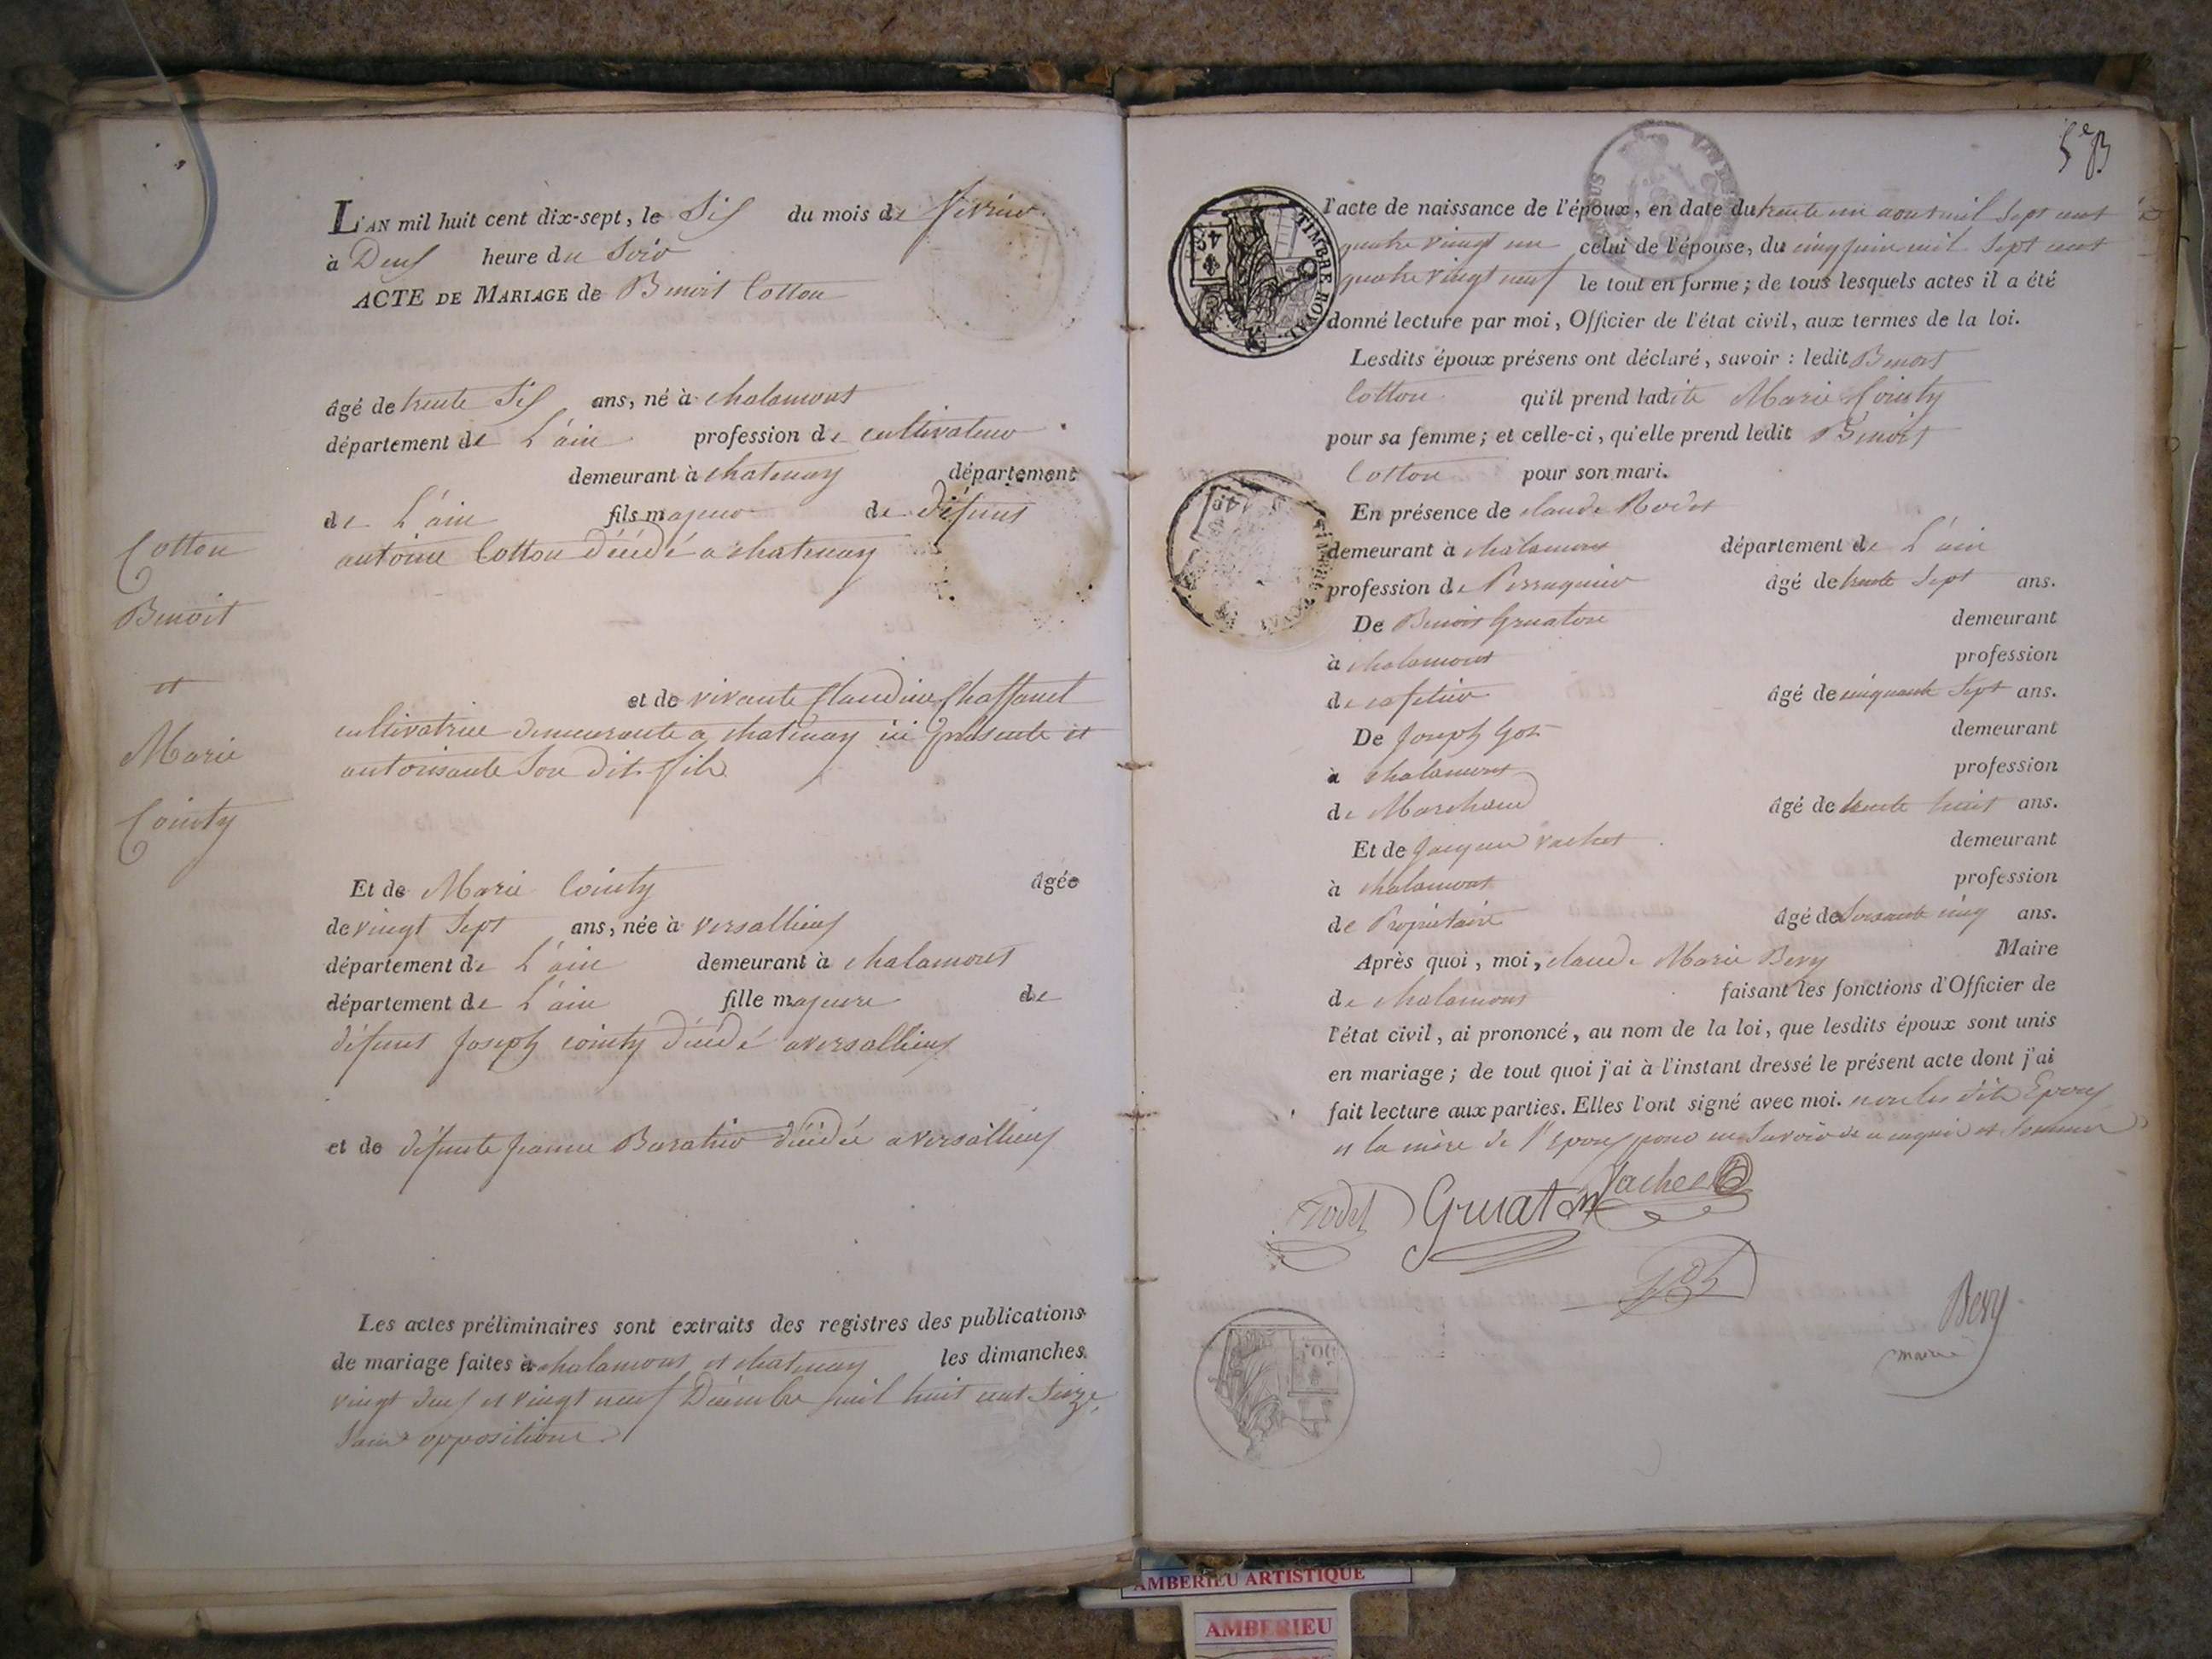 Cotton
Benoit
et
Marie
Cointy
L'AN mil huit cent dix-sept, le Six du mois de fevrier
à Deux heure du Soir
ACTE DE MARIAGE de Benoit Cotton
âgé de trente Six ans, né à chalamont
département de L'ain profession de cultivateur
demeurant à chatenay département
de L'ain fils majeur de défunt
antoine Cotton décédé a chatenay
et de vivante Claudine Chaffanet
cultivatrice demeurante a chatenay ici présente et
autorisante Son dit fils
Et de Marie Cointy âgée
de vingt Sept ans, née à versallieux
département de L'ain demeurant à chalamont
département de L'ain fille majeure de
défunt Joseph cointy décédé a versallieux
et de défunte jeanne Baratier décédée a versallieux
Les actes préliminaires sont extraits des registres des publications
de mariage faites à chalamont et chatenay les dimanches
vingt deux et vingt neuf Décembre mil huit cent Seize,
Sans opposition.
5e
TIMBRE ROYAL
l'acte de naissance de l'époux, en date du trente un aout mil Sept cent
quatre vingt un celui de l'épouse, du cinq juin mil Sept cent
quatre vingt neuf le tout en forme; de tous lesquels actes il a été
donné lecture par moi, Officier de l'état civil, aux termes de la loi.
Lesdits époux présens ont déclaré, savoir : ledit Benoit
Cotton qu'il prend ladite Marie Cointy
pour sa femme; et celle-ci, qu'elle prend ledit Benoit
Cotton pour son mari.
En présence de claude Rodet
demeurant à chalamont département de L'ain
profession de Perruquier âgé de trente Sept ans.
De Benoit Gruaton demeurant
à chalamont profession
de cafetier âgé de cinquante Sept ans.
De Joseph Goz demeurant
à chalamont profession
de Marchand âgé de trente huit ans.
Et de Jacques vachet demeurant
à chalamont profession
de Propriétaire âgé de Soixante cinq ans.
Après quoi, moi, claude Marie Bevy Maire
de chalamont faisant les fonctions d'Officier de
l'état civil, ai prononcé, au nom de la loi, que lesdits époux sont unis
en mariage; de tout quoi j'ai à l'instant dressé le présent acte dont j'ai
fait lecture aux parties. Elles l'ont signé avec moi. non les dits Epoux
et la mère de l'Epoux pour ne Savoir de ce enquis et Sommés
Rodet Gruaton Vachet
Goz
Bevy
maire
AMBERIEU ARTISTIQUE
AMBERIEU